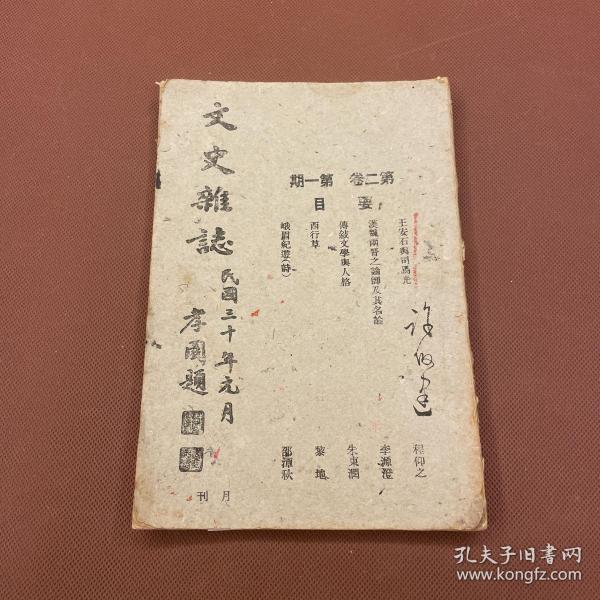 第二卷 第一期
要目
王安石與司馬光 程仰之
漢魏兩晉之論師及其名論 李源澄
傳敍文學與人格 朱東潤
西行草 黎地
峨眉紀遊(詩) 邵潭秋
文史雜誌
民國三十年元月
孝園題
月刊
孔夫子旧书网
www.kongfz.com